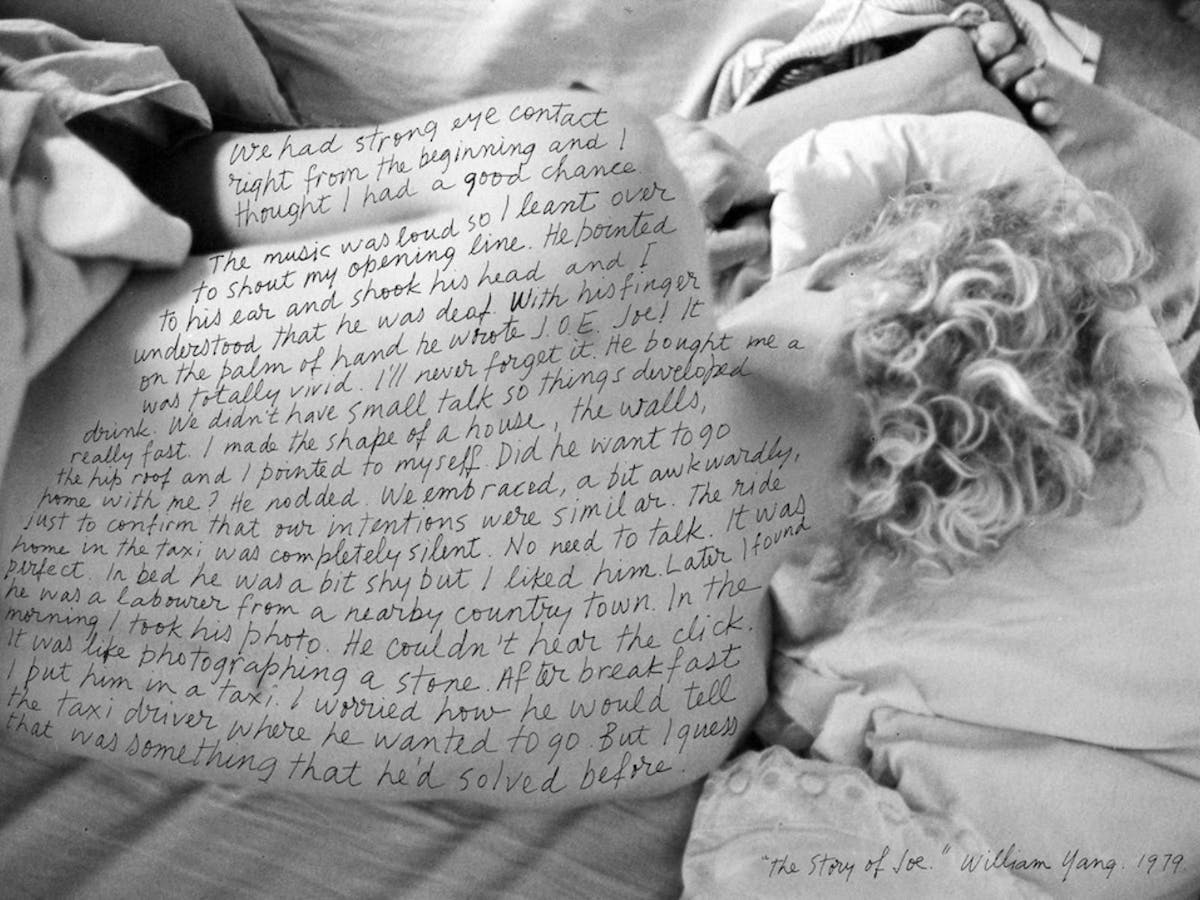 We had strong eye contact
right from the beginning and I
thought I had a good chance
The music was loud so I leant over
to shout my opening line. He pointed
to his ear and shook his head and I
understood that he was deaf. With his finger
on the palm of hand he wrote J.O.E. Joe! It
was totally vivid. I'll never forget it. He bought me a
drink. We didn't have small talk so things developed
really fast. I made the shape of a house, the walls,
the hip roof and I pointed to myself. Did he want to go
home with me? He nodded. We embraced, a bit awkwardly,
just to confirm that our intentions were similar. The ride
home in the taxi was completely silent. No need to talk. It was
perfect. In bed he was a bit shy but I liked him. Later I found
he was a labourer from a nearby country town. In the
morning I took his photo. He couldn't hear the click.
It was like photographing a stone. After breakfast
I put him in a taxi. I worried how he would tell
the taxi driver where he wanted to go. But I guess
that was something that he'd solved before.
"The Story of Joe." William Yang. 1979.